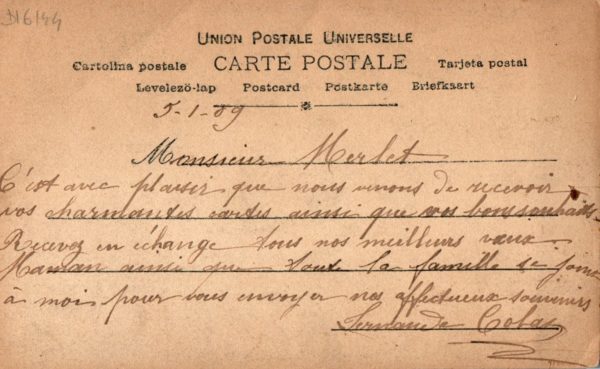 D16144
UNION POSTALE UNIVERSELLE
Cartolina postale CARTE POSTALE Tarjeta postal
Levelezö-lap Postcard Postkarte Briefkaart
5-1-09
Monsieur Merlet
C'est avec plaisir que nous venons de recevoir
vos charmantes cartes ainsi que vos bons souhaits.
Recevez en échange tous nos meilleurs vœux.
Maman ainsi que toute la famille se joint
à moi pour vous envoyer nos affectueux souvenirs
Fernande